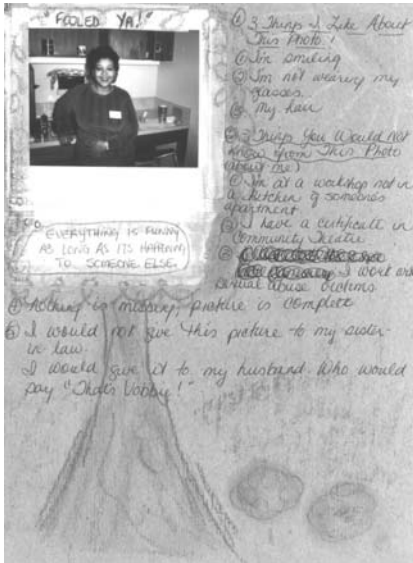 "FOOLED YA!"
EVERYTHING IS FUNNY
AS LONG AS ITS HAPPENING
TO SOMEONE ELSE.
① 3 Things I Like About
This Photo!
① I'm smiling
② I'm not wearing my
glasses.
③ My hair
② 3 Things You Would Not
Know from This Photo
about me)
① I'm at a workshop not in
a kitchen of someones
apartment
② I have a certificate in
Community Theatre
③ I work
sexual abuse victims
④ Nothing is missing, picture is complete
⑤ I would not give this picture to my sister-
in law.
I would give it to my husband. Who would
say "That's Vobby!"